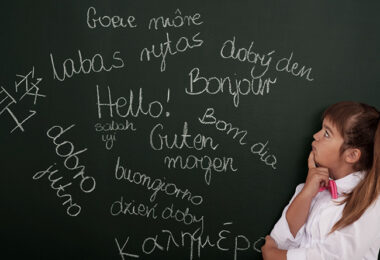 Goeie môre
labas rytas
Dobrý den
Bonjour
Hello!
sabah
iyi
Guten
morgen
Bom dia
dobro
jutro
buongiorno
dzień doby
καλημέρα